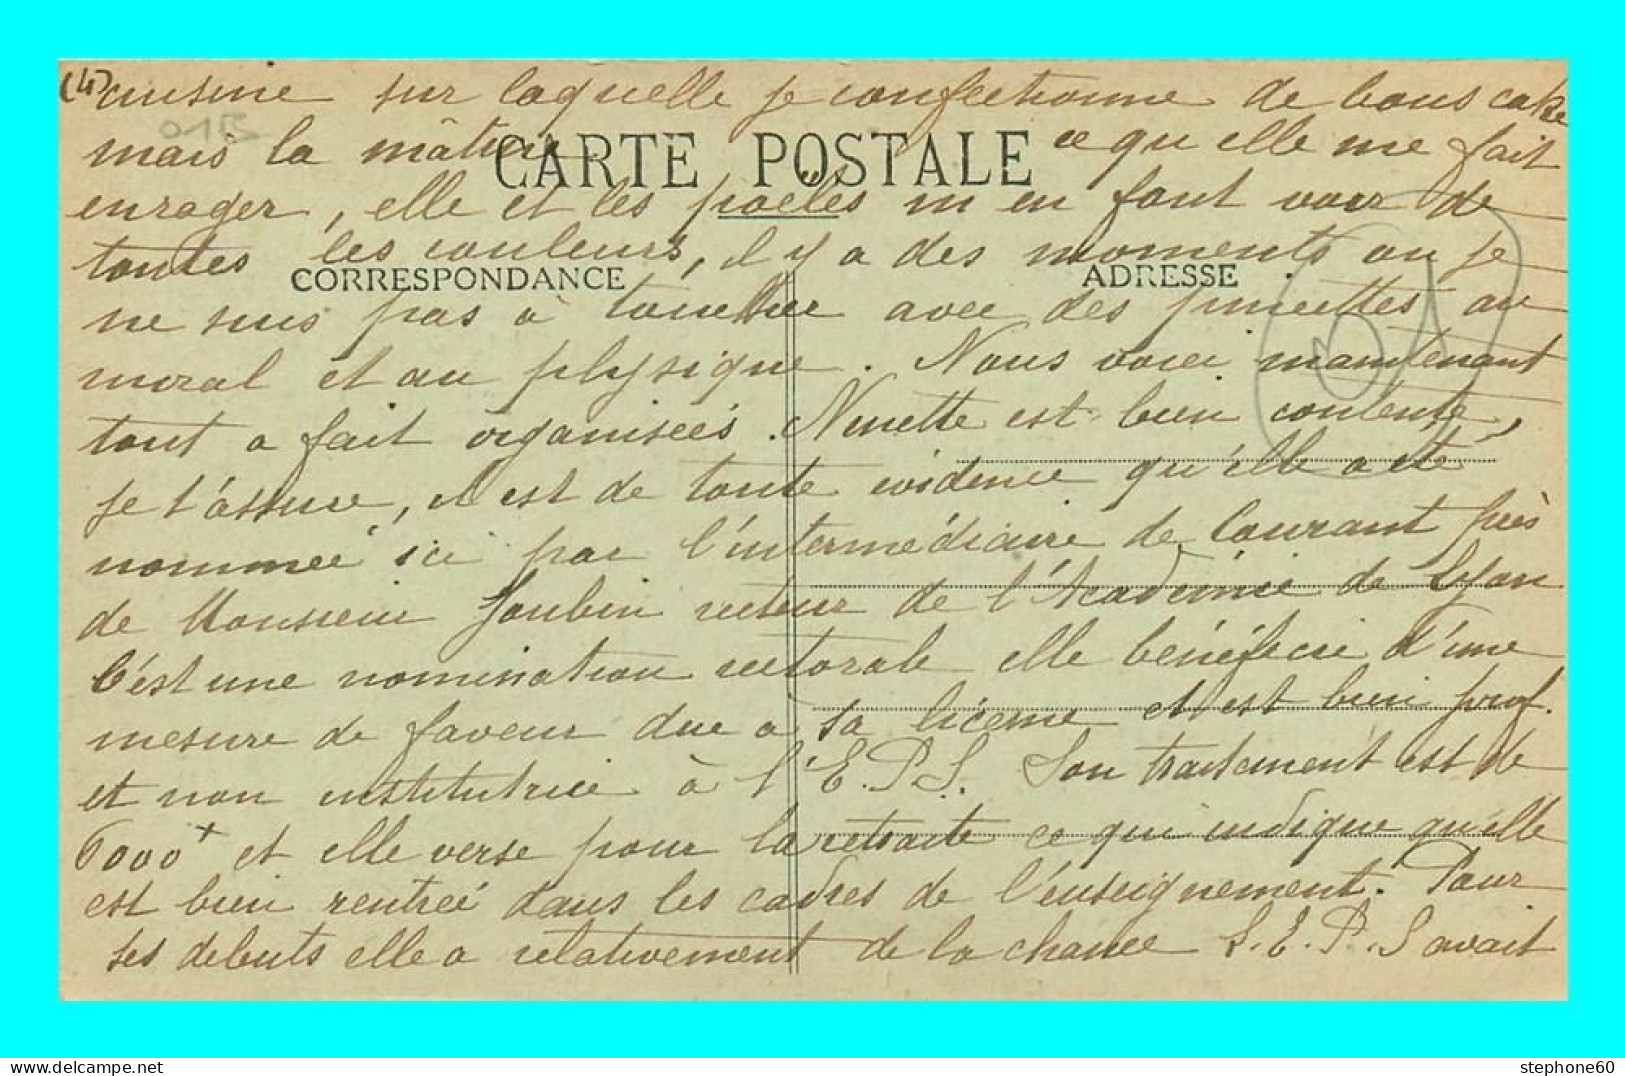 (4) cuisine sur laquelle je confectionne de bons cake
mais la mâtine CARTE POSTALE ce qu elle me fait
enrager, elle et les poëles m en font voir de
toutes les couleurs, il y a des moments ou je
CORRESPONDANCE ADRESSE
ne suis pas à toucher avec des pincettes au
moral et au physique. Nous voici maintenant
tout a fait organisées. Ninette est bien contente,
je t'assure, il est de toute evidence qu'elle a été
nommée ici par l'intermédiaire de Courant près
de Monsieur Joubin recteur de l'Académie de Lyon
C'est une nomination rectorale elle bénéficie d'une
mesure de faveur due a sa licence et est bien prof.
et non institutrice à l'E.P.S. Son traitement est de
6000+ et elle verse pour la retraite ce qui indique qu'elle
est bien rentrée dans les cadres de l'enseignement. Pour
ses debuts elle a relativement de la chance L.E.P.S avait
stephone60